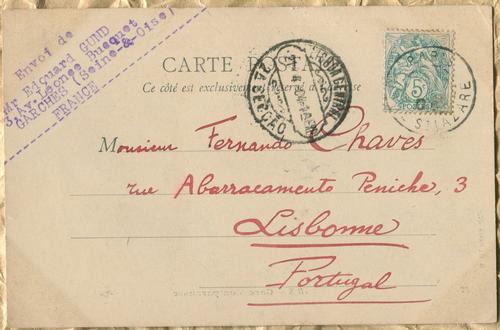 Envoi de
Mr Edouard GUND
3, Av. Léonce Bucquet
GARCHES (Seine-&-Oise)
FRANCE
CARTE POSTALE
Ce côté est exclusivement réservé à l'adresse
2A SECÇÃO
PARIS
ST LAZARE
5
Monsieur Fernando Chaves
rue Abarracamento Peniche, 3
Lisbonne
Portugal